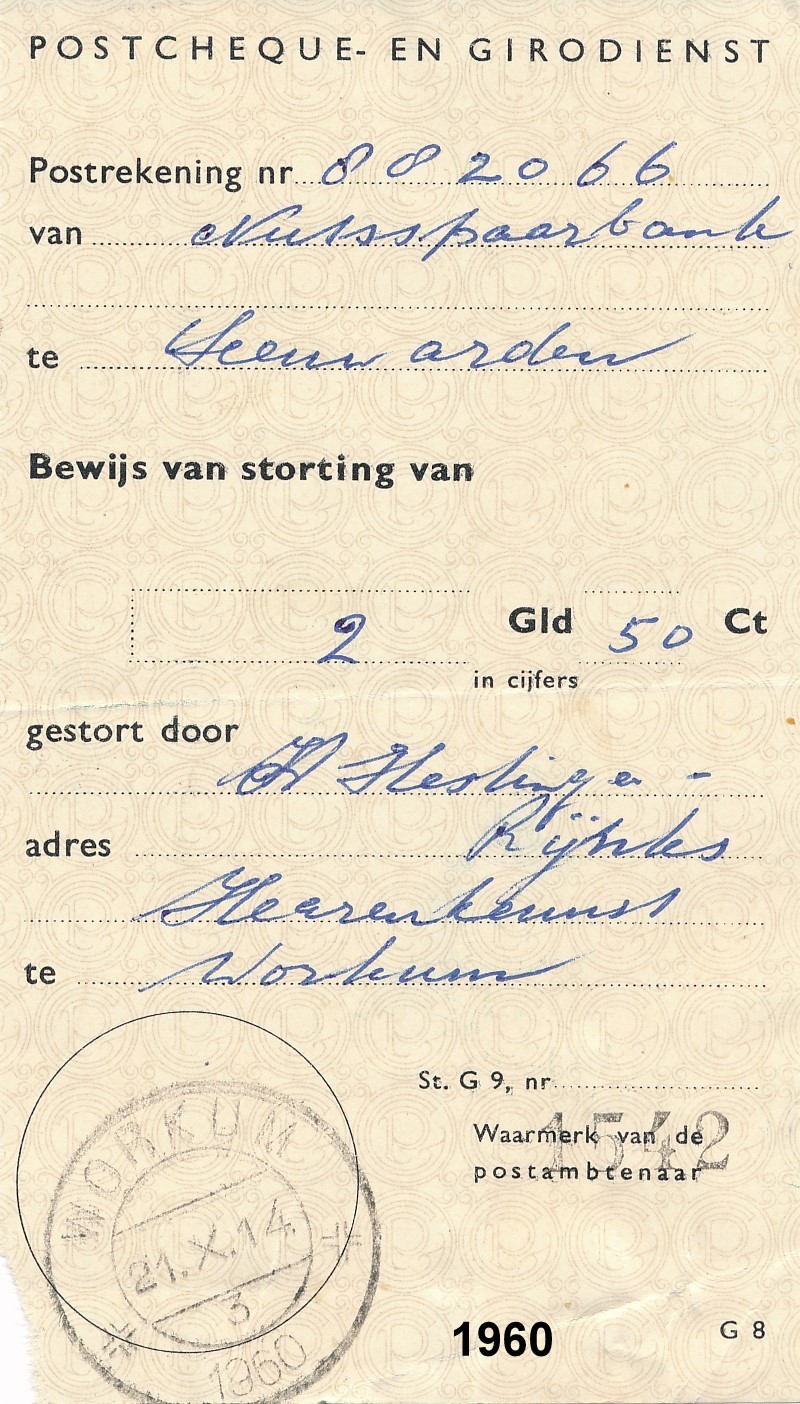 POSTCHEQUE- EN GIRODIENST
Postrekening nr 882066
van Nutsspaarbank
te Leeuwarden
Bewijs van storting van
2 Gld 50 Ct
in cijfers
gestort door
H Heslinga -
adres Rijpkes
Hearenkeunst
te Workum
St. G 9, nr
1542
Waarmerk van de
postambtenaar
WORKUM
21.X.14
3
1960
1960
G 8